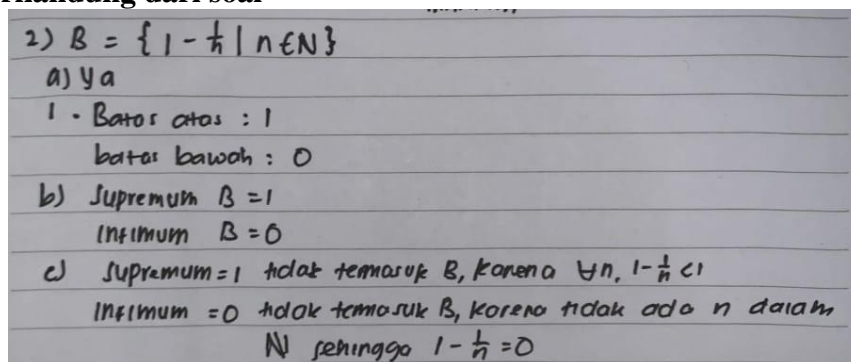 2) B = { 1 - 1/n | n ∈ N }
a) Ya
1. Batas atas : 1
batas bawah : 0
b) Supremum B = 1
Infimum B = 0
c) Supremum = 1 tidak termasuk B, karena ∀n, 1 - 1/n < 1
Infimum = 0 tidak termasuk B, karena tidak ada n dalam
N sehingga 1 - 1/n = 0